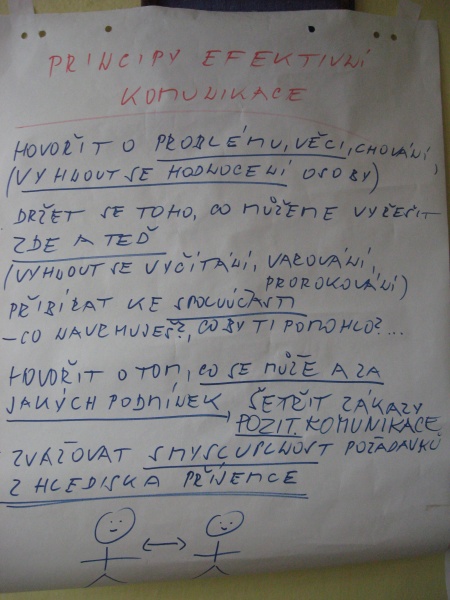 PRINCIPY EFEKTIVNÍ
KOMUNIKACE
HOVOŘIT O PROBLÉMU, VĚCI, CHOVÁNÍ,
(VYHNOUT SE HODNOCENÍ OSOBY)
DRŽET SE TOHO, CO MŮŽEME VYŘEŠIT
ZDE A TEĎ
(VYHNOUT SE VYČÍTÁNÍ, VAROVÁNÍ,
PROROKOVÁNÍ)
PŘIBÍRAT KE SPOLUÚČASTI
- CO NAVRHUJEŠ?, CO BY TI POMOHLO?...
HOVOŘIT O TOM, CO SE MŮŽE A ZA
JAKÝCH PODMÍNEK, ŠETŘIT ZÁKAZY
POZIT. KOMUNIKACE
ZVAŽOVAT SMYSLUPLNOST POŽADAVKŮ
Z HLEDISKA PŘÍJEMCE